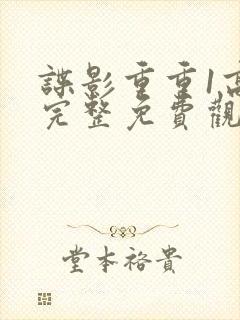 諜影重重1高
完整免費觀
堂本裕貴